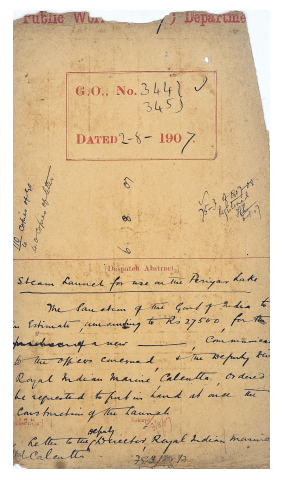 Public Wor ) Departme
G.O., No. 344 }
345 }
DATED 2-8- 1907.
6/8/07
Despatch Abstract.
Steam Launch for use on the Periyar Lake
The Sanction of the Govt of India to
an Estimate, amounting to Rs 27500, for the
purchase of a new ———, Communicated
to the officers concerned, & the Deputy Dir
Royal Indian Marine, Calcutta, ordered
be requested to put in hand at once the
Construction of the Launch
Letter to the Deputy Director, Royal Indian Marine
Calcutta